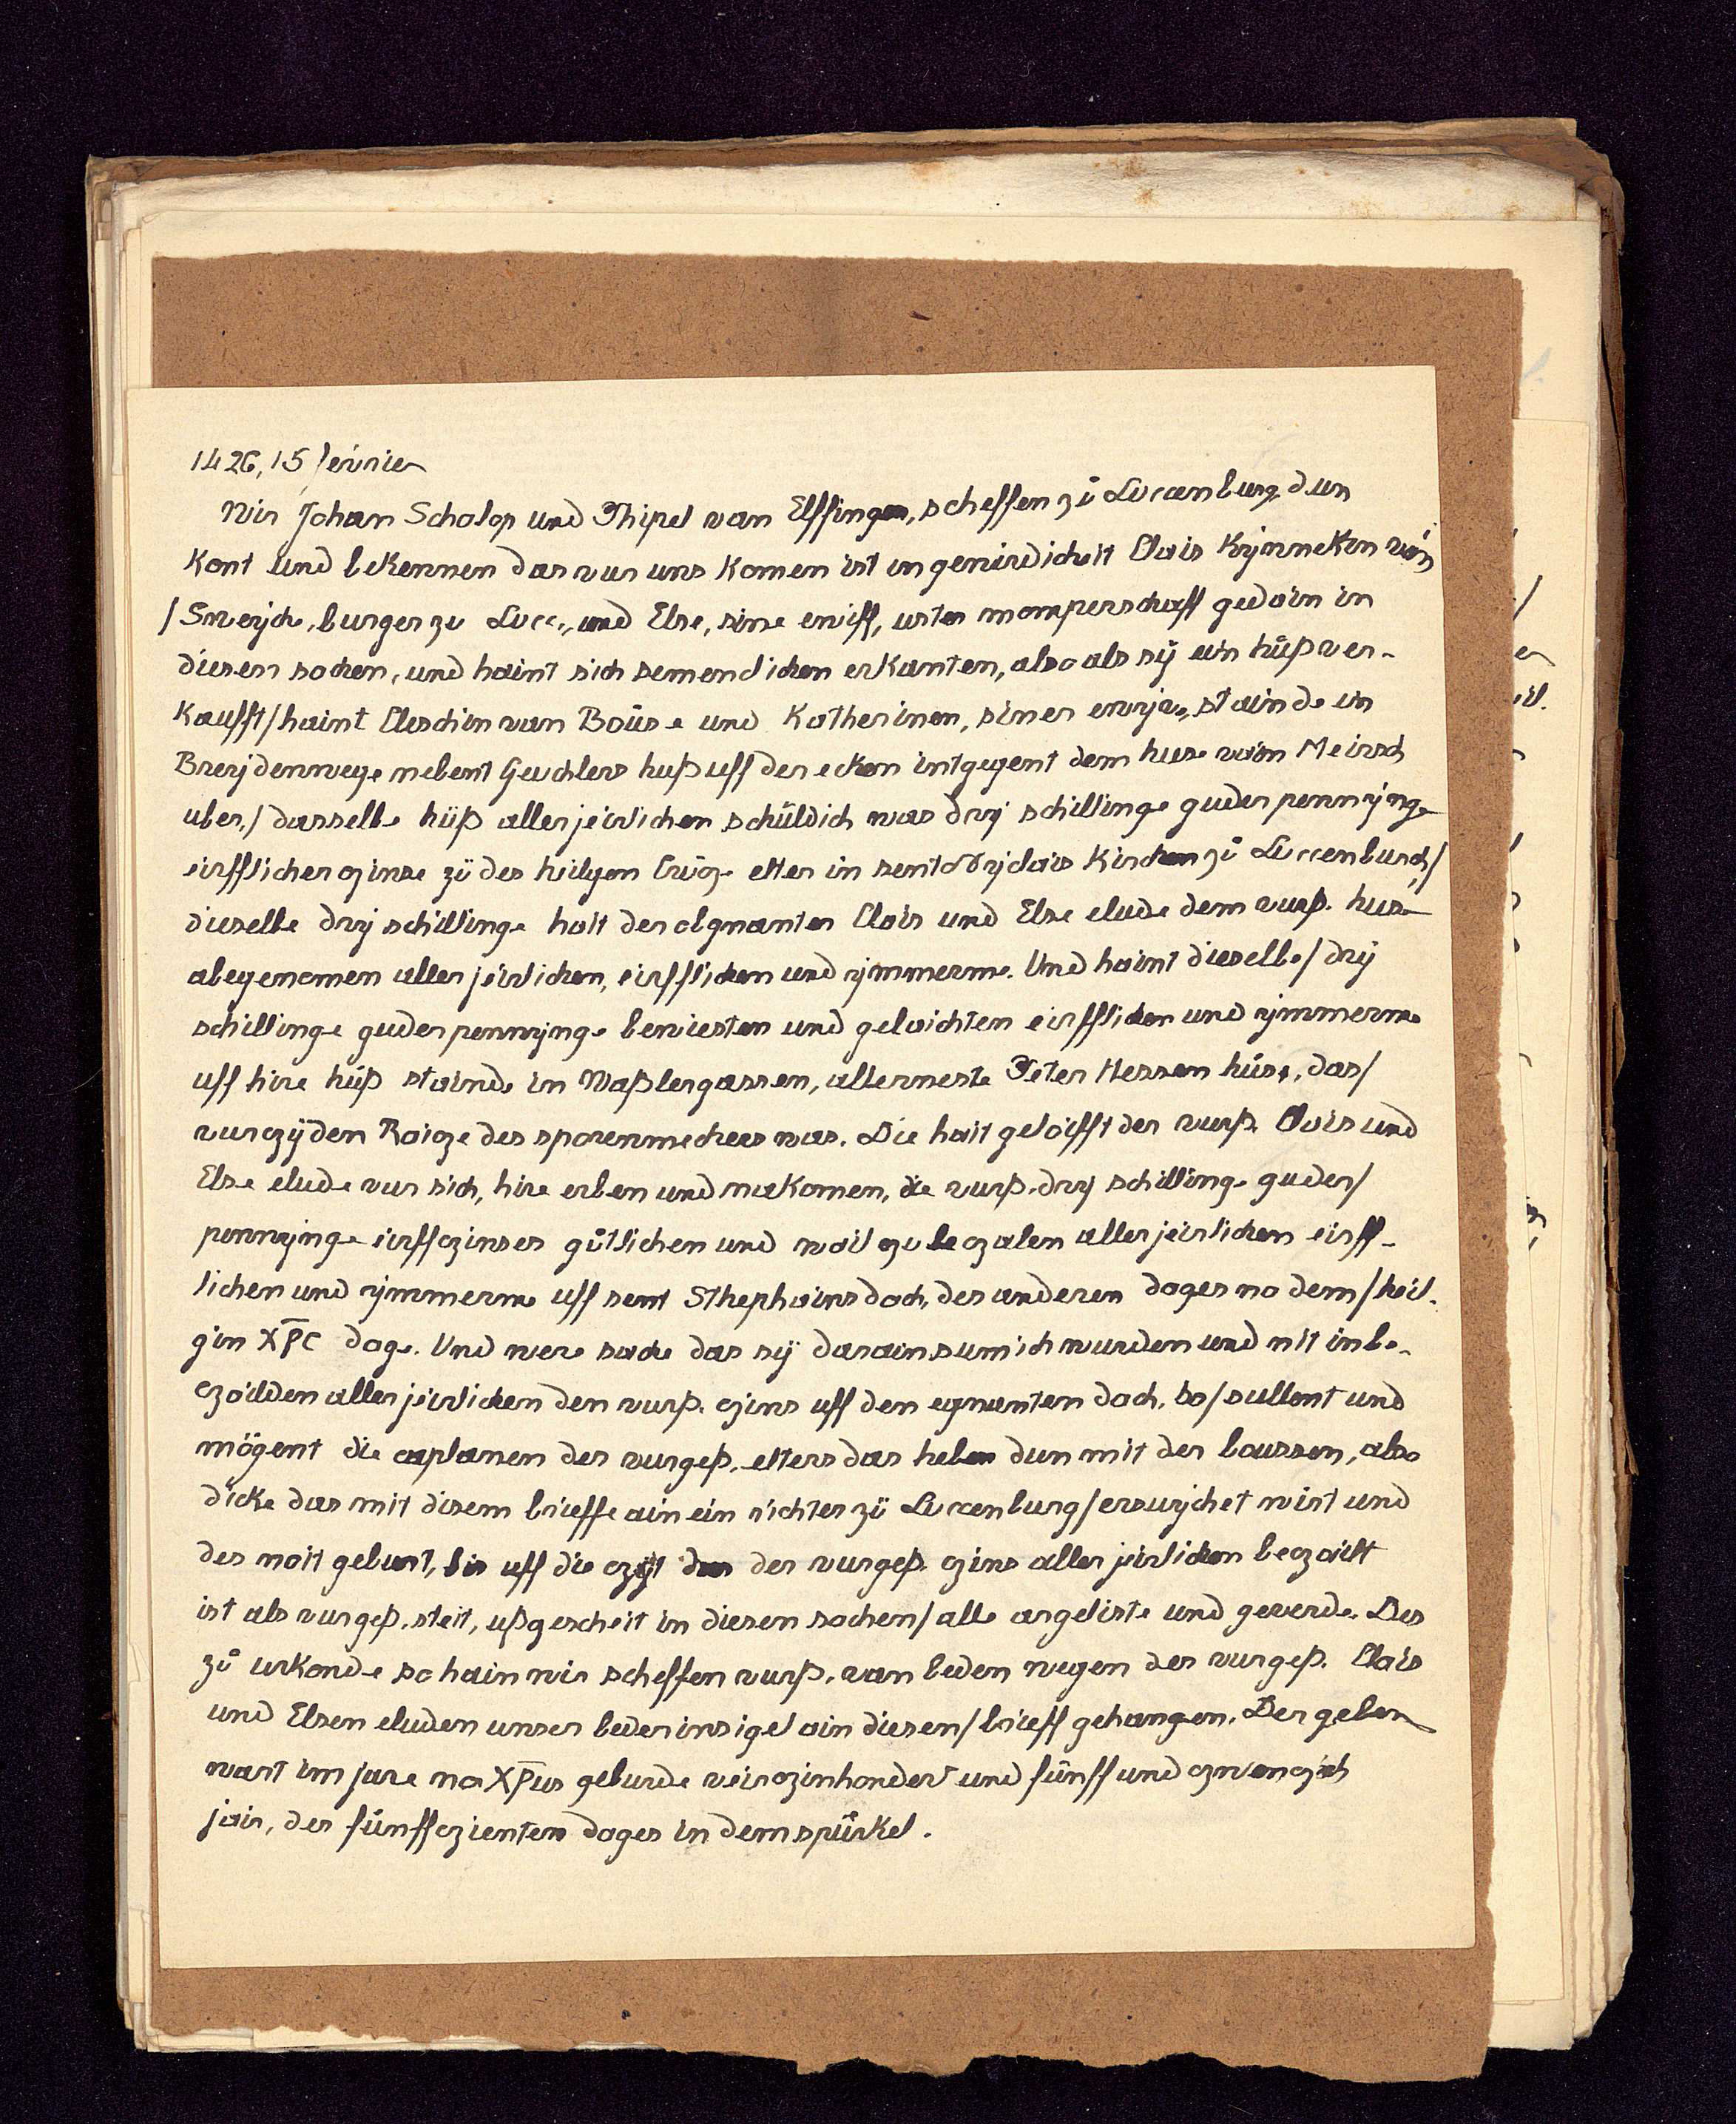 1426, 15 février
Wir Johan Scholop und Thipel van Elffingen, scheffen zů Luccenburg dun
kont und bekennen das vur uns komen ist in genwirdicheit Clais Krynneken van
/ Sweych, burger zu Lucc., und Else, sine wiff, uster momperschaff gedain in
diesen sachen, und haint sich semendichen erkanten, also als sÿ ein hůß ver-
kaufft / haint Cleschin van Boůse und Katherinen, siner stainde in
Breydenwege nebent Guchlers huß uff der ecken intgegent dem huse vain Meirsch
uber, / dasselbe hüß aller jeirlichen schůldich was dry schillinge guder pennynge
eirfflicher czinse zů des heilgen Crůcz elter in sent Nyclais kirchen zů Luccenburch, /
dieselbe dry schillinge hait der obgnanter Clais und Else elude dem vurß. huse
abegenomen aller jeirlichen, eirfflichen und ymmerme. Und haint dieselbe / dry
schillinge guder pennynge bewiesten und gelaichten eirfflichen und ymmerme
uff hire hüß stainde in Waßlergassen, allerneste Peter Hessen hůse, das /
vurczÿden Roicze des sporenmechers was. Die hait geloifft der vurß. Clais und
Else elude vur sich, hire erben und nakomen, die vurß. dry schillinge guder /
pennynge eirffczinses gůtlichen und wail zu beczalen aller jeirlichen eirff-
lichen und ymmerme uff sent Sthephains dach, des anderen dages na dem / heil-
gin XPC dage. Und were sache das sÿ darain sumich wurden und nit inbe-
czailden aller jeirlichen den vurß. czins uff den egnanten dach, so / sullent und
mögent die caplanen des vurgeß. elters das heben dun mit der boussen, also
dicke das mit disem brieffe ain ein richter zů Luccenburg / ersuychet wirt und
des noit geburt, bis uff die czijt das der vurgeß. czins aller jeirlichen beczailt
ist als vurgeß. steit, ußgescheit in diesen sachen / alle argeliste und geverde. Des
zů urkonde so hain wir scheffen vurß. van beden wegen der vurgeß. Clais
und Elsen eluden unser beder insigel ain diesen / brieff gehangen. Der geben
wart im jare na XPus geburde veirczinhondert und fůnff und czwenczich
jair, des fůnffczienten dages in dem spůrkel.